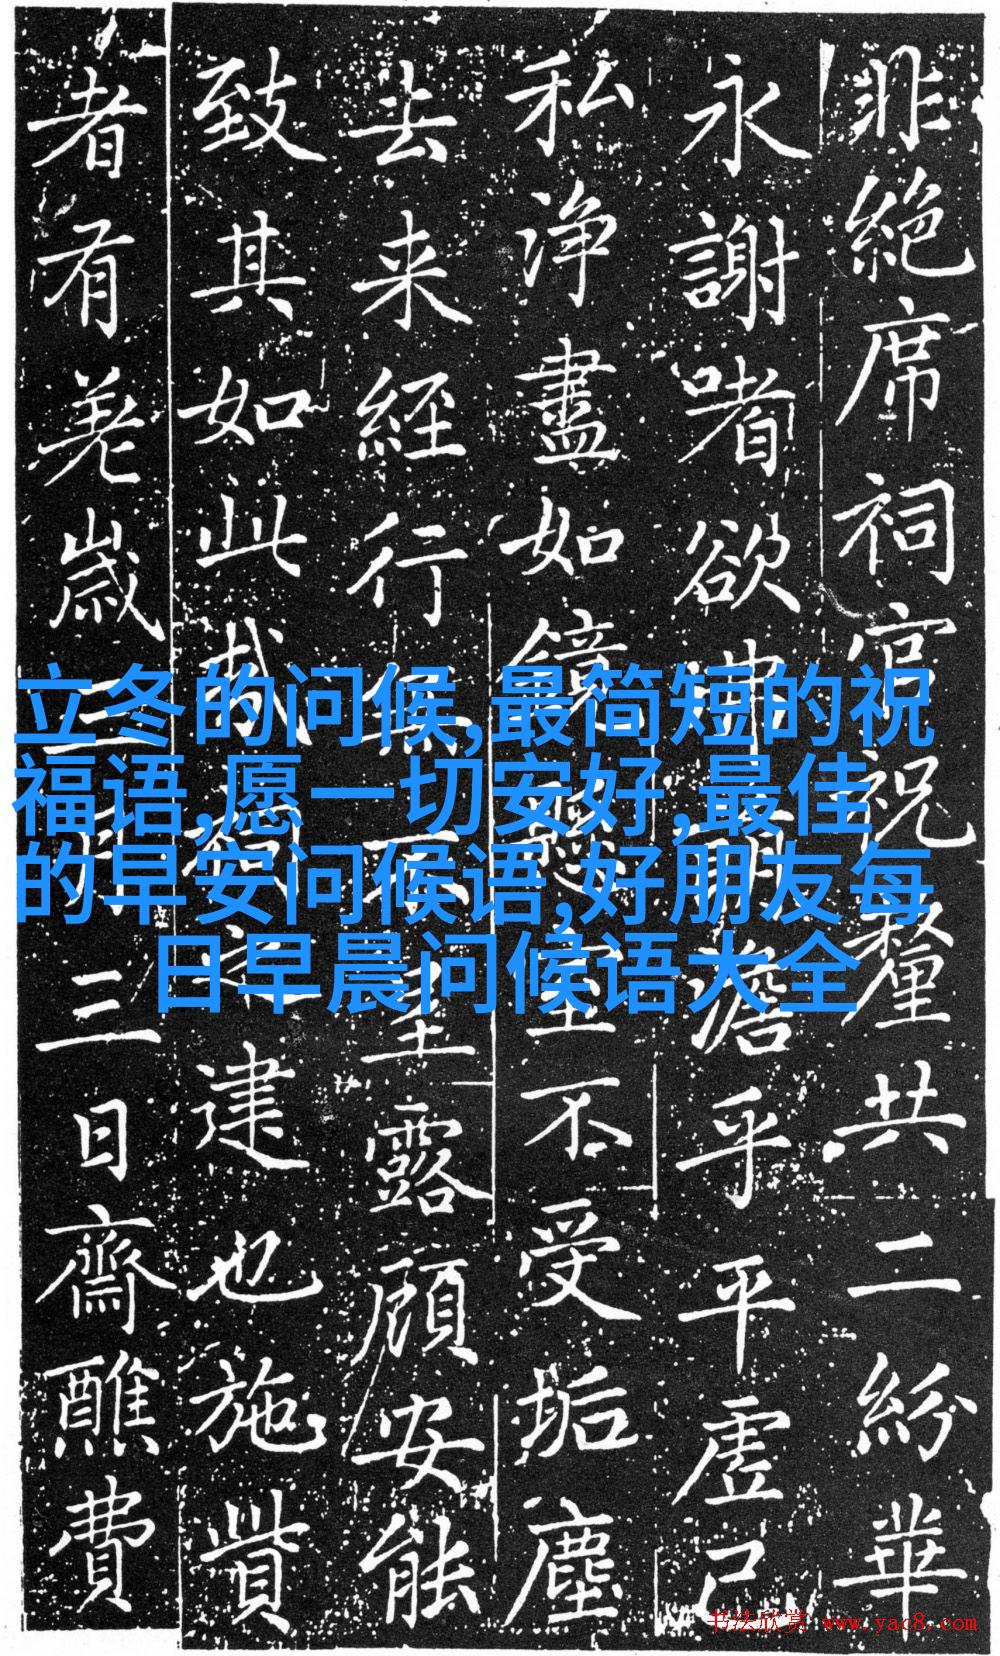 非絶席祠官祝釐共二紛華
永謝嗜欲澹乎平虛己
私净盡如鏡不受垢塵
去来經行露顧安能
致其如此哉建也施貲
者有差歲三日齋醮費
立冬的问候,最简短的祝
福语,愿一切安好,最佳
的早安问候语,好朋友每
日早晨问候语大全
书法欣赏 www.yac8.com